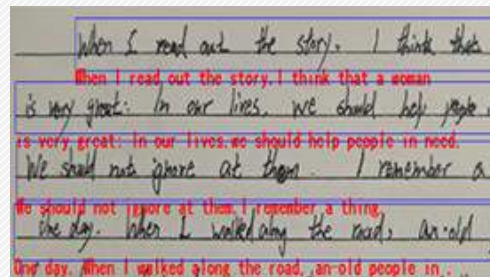 When I read out the story. I think that
When I read out the story. I think that a woman
is very great: In our lives. we should help people
is very great: in our lives.we should help people in need.
We should not ignore at them. I remember a
We should not ignore at them.I remember a thing.
One day. When I walked along the road, an-old
One day. When I walked along the road, an-old people in .